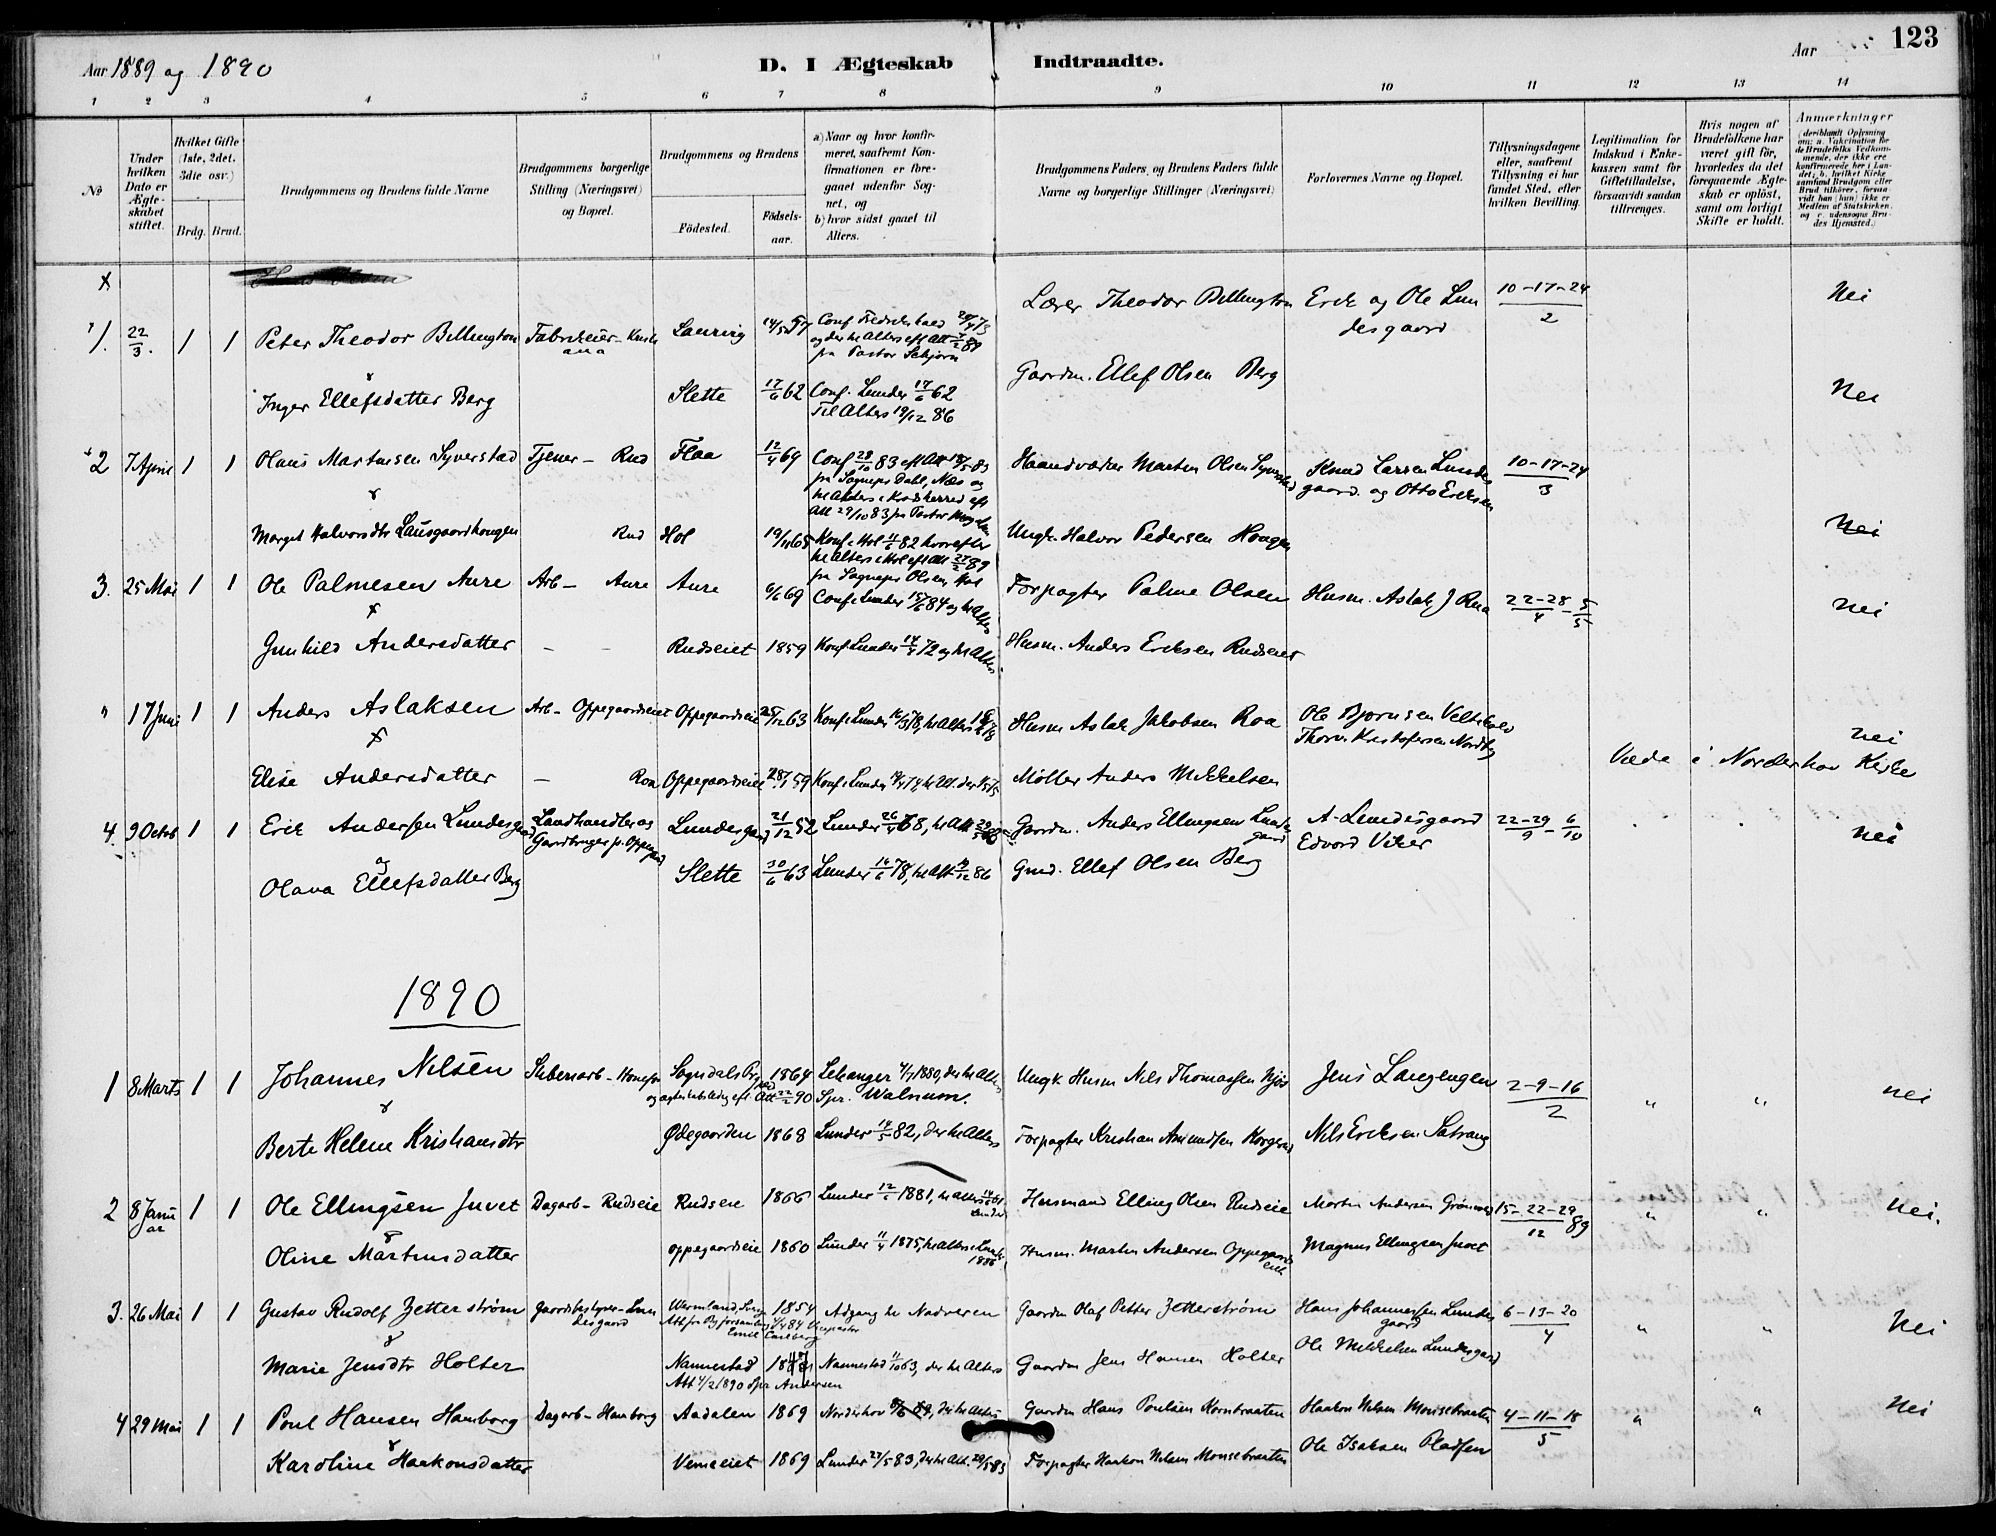 Aar 1889 og 1890
D. I Ægteskab Indtraadte.
Aar
123
1 2 3 4 5 6 7 8 9 10 11 12 13 14
No
Under hvilken Dato er Ægteskabet stiftet.
Hvilket Gifte (1ste, 2det, 3die osv.)
Brdg. Brud.
Brudgommens og Brudens fulde Navne
Brudgommens borgerlige Stilling (Næringsvei) og Bopæl.
Brudgommens og Brudens
Födested.
Födselsaar.
a) Naar og hvor konfirmeret, saafremt Konfirmationen er foregaaet udenfor Sognet, og
b) hvor sidst gaaet til Alters.
Brudgommens Faders, og Brudens Faders fulde Navne og borgerlige Stillinger (Næringsvei)
Forlovernes Navne og Bopæl.
Tillysningsdagene eller, saafremt Tillysning ei har fundet Sted, efter hvilken Bevilling.
Legitimation for Indskud i Enkekassen samt for Giftetilladelse, forsaavidt saadan tiltrænges.
Hvis nogen af Brudefolkene har været gift för, hvorledes da det foregaaende Ægteskab er oplöst, samt om lovligt Skifte er holdt.
Anmærkninger
(deriblandt Oplysning om: a. Vakcination for de Brudefolks Vedkommende, der ikke ere konfirmerede her i Landet; b. hvilket Kirkesamfund Brudgom eller Brud tilhörer, forsaavidt han (hun) ikke er Medlem af Statskirken, og c. udensogns Brudes Hjemsted.)
1. 22/3. 1 1 Peter Theodor Bellington Fabrikeier - Kristiana Laurvig 14/5 57 Conf Fredrikshald og der til Alters efl Att fra Pastor Lærer Theodor Bellington Erik og Ole Lundesgaard 10-17-24/2 Nei
Inger Ellefsdatter Berg Slette 17/6 62 Conf. Lunder 17/6 62 Til Alters 19/12 86 Gaardm. Ellef Olsen Berg Nei
2 7 April 1 1 Olaus Martinsen Syverstad Tjener - Rud Flaa 12/4 69 Conf 28/10 83 efl Att fra Sognepr Dahl, Næs og til Alters i Krødsherred efl Att 29/10 83 fra Pastor Haandværker Martin Olsen Syverstad Knud Larsen Lundesgaard og Otto Eriksen 10-17-24/3
Marget Halvorsdtr Lausgaardhougen Rud Hol Konf i Hol 11/6 82 hvorefter til Alters i Hol efl Att 27/2 89 fra Sognepr Olsen, Hol Ungk. Halvor Pedersen Haagen Nei
3. 25 Mai 1 1 Ole Palmesen Aure Arb - Aure Aure 6/6 69 Conf i Lunder 15/6 84 og til Alters Forpagter Palme Olsen Husm. Aslak J Roa 22-28/4 - 5/5 nei
Gunhild Andersdatter - - Rudseiet 1859 Konf Lunder 14/7 72 og til Alters Husm. Anders Eriksen Rudseiet
" 17 Juni 1 1 Anders Aslaksen Arb - Oppegaardseiet Oppegaardseie 25/12 63 Konf i Lunder 16/3 78, til Alters Husm Aslak Jakobsen Roa Ole Bjørnsen Veltekvld Thorv. Kristofersen Nordby nei
Elise Andersdatter - Roa Oppegaardseie 59 Konf i Lunder til Alt. der Møller Anders Mikkelsen Viede i Norderhov Kirke
4. 9 Octob 1 1 Erik Andersen Lundesgaard Landhandler og Gaardbruger paa Oppegaard Lundesgaard 21/12 52 Lunder 26/4 68, til Alt Gaardm. Anders Ellingsen Lundesgaard A. Lundesgaard Edvard Viker 22-29/9 - 6/10 nei
og
Olava Ellefsdatter Berg Slette 30/6 63 Lunder 16/6 78, til Alt 86 Gmd. Ellef Olsen Berg
1890
1 8 Marts 1 1 Johannes Nilsen Stuberiarb - Hønefos Sogndals Prgjæld 1864 Leikanger 4/7 1880, der til Alters og ægteskabsledig efl. Att 22/2 90 Spr. Walnum. Ungk. Husm Nils Thomassen Njøs Jens Langengen 2-9-16/2 " " nei
Berte Helene Kristiansdtr Ødegaarden 1868 Lunder 14/5 82, der til Alters Forpagter Kristian Amundsen Korgerud Nils Eriksen Satrang
2 8 Januar 1 1 Ole Ellingsen Juvet Dagarb - Rudseie Rudseie 1866 Lunder 12/6 1881, til Alters Lunder Husmand Elling Olsen Rudseie Martin Andersen Grønvold 15-22-29/12 89 " " Nei.
Oline Martinsdatter Oppegaardseie 1860 Lunder 11/4 1875, til Alters i Lunder 1886 Husm. Martin Andersen Oppegaardseie Magnus Ellingsen Juvet
3. 26 Mai 1 1 Gustav Rudolf Zetterstrøm Gaardsbestyrer - Lundesgaard Wermland, 1854 Adgang til Nadveren Emil Carlberg Gaardm Olaf Petter Zetterstrøm Hans Johannessen Lundesgaard 6-13-20/4 " " Nei
Marie Jensdtr Holter Nannestad Nannestad 11/10 63, der til Alters Att 4/2 1890 Spr Andersen Gaardm Jens Hansen Holter Ole Mikkelsen Lundesgaard
4 29 Mai 1 1 Poul Hansen Hamborg Dagarb - Hamborg Aadalen 1869 Norderhov der til Alters Gaardm Hans Poulsen Kornbraaten Haakon Nilsen Monsebraaten 4-11-18/5 " " Nei
Karoline Haakonsdatter Vemeeiet 1869 Lunder 27/5 83, der til Alt. 29/5 83 Forpagter Haakon Nilsen Monsebraaten Ole Isaksen Pladsen